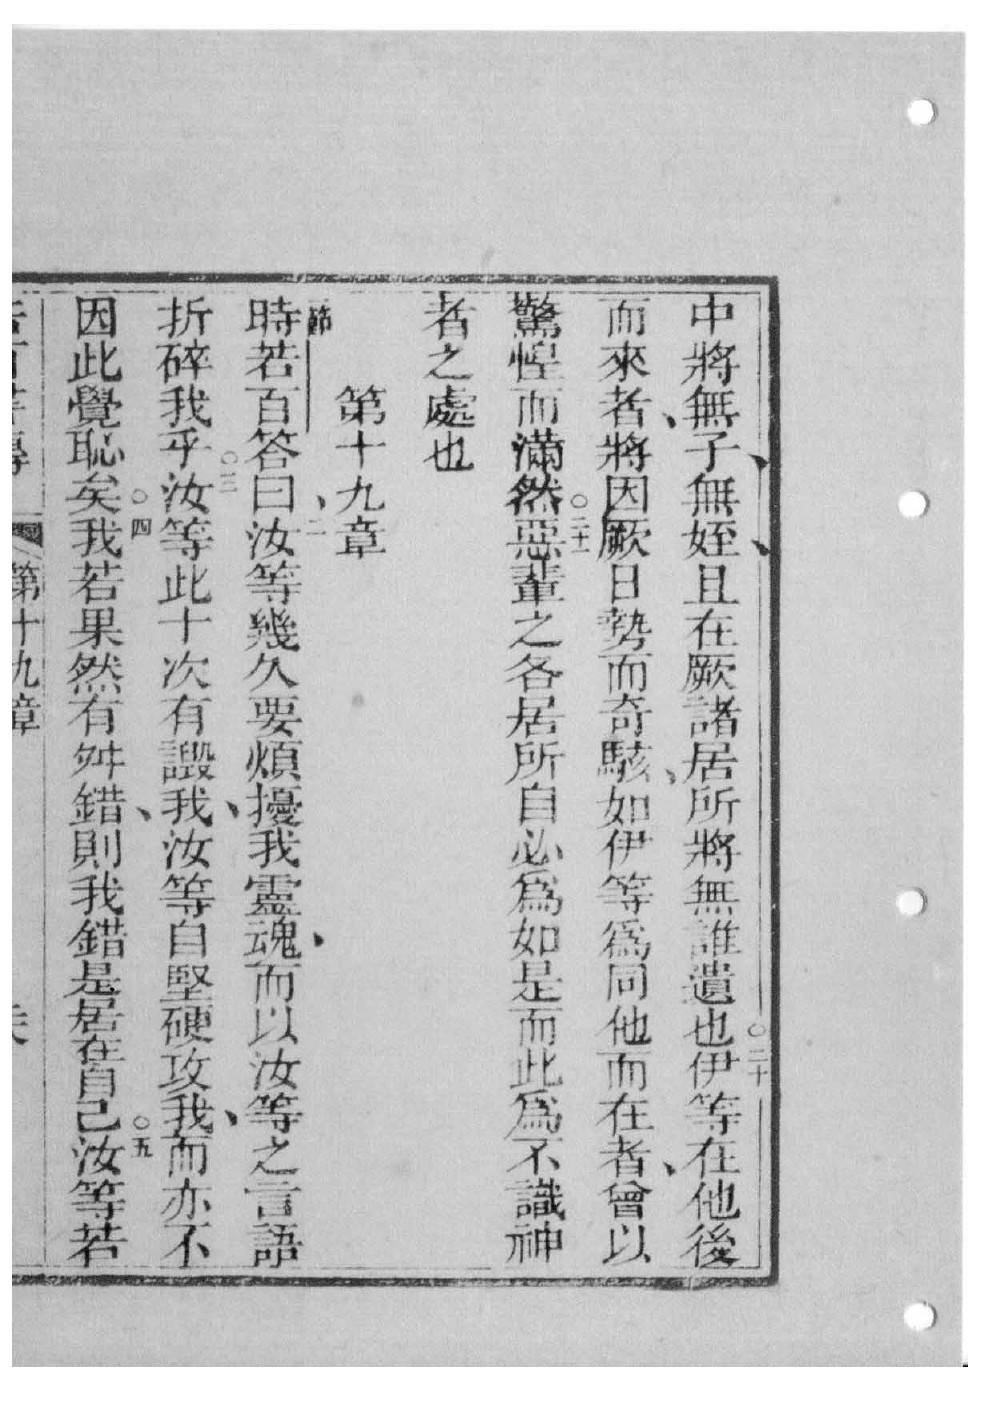 中將無子、無姪、且在厥諸居所將無誰遺也○二十伊等在他後
而來者、將因厥日勢而奇駭、如伊等爲同他而在者、曾以
驚惶而滿然○二十一惡輩之各居所自必爲如是而此爲不識神
者之處也
第十九章
節
時若百答曰、○二汝等幾久要煩擾我靈魂、而以汝等之言語
折碎我乎○三汝等此十次有譭我、汝等自堅硬攻我、而亦不
因此覺恥矣○四我若果然有舛錯、則我錯是居在自己○五汝等若
第十九章